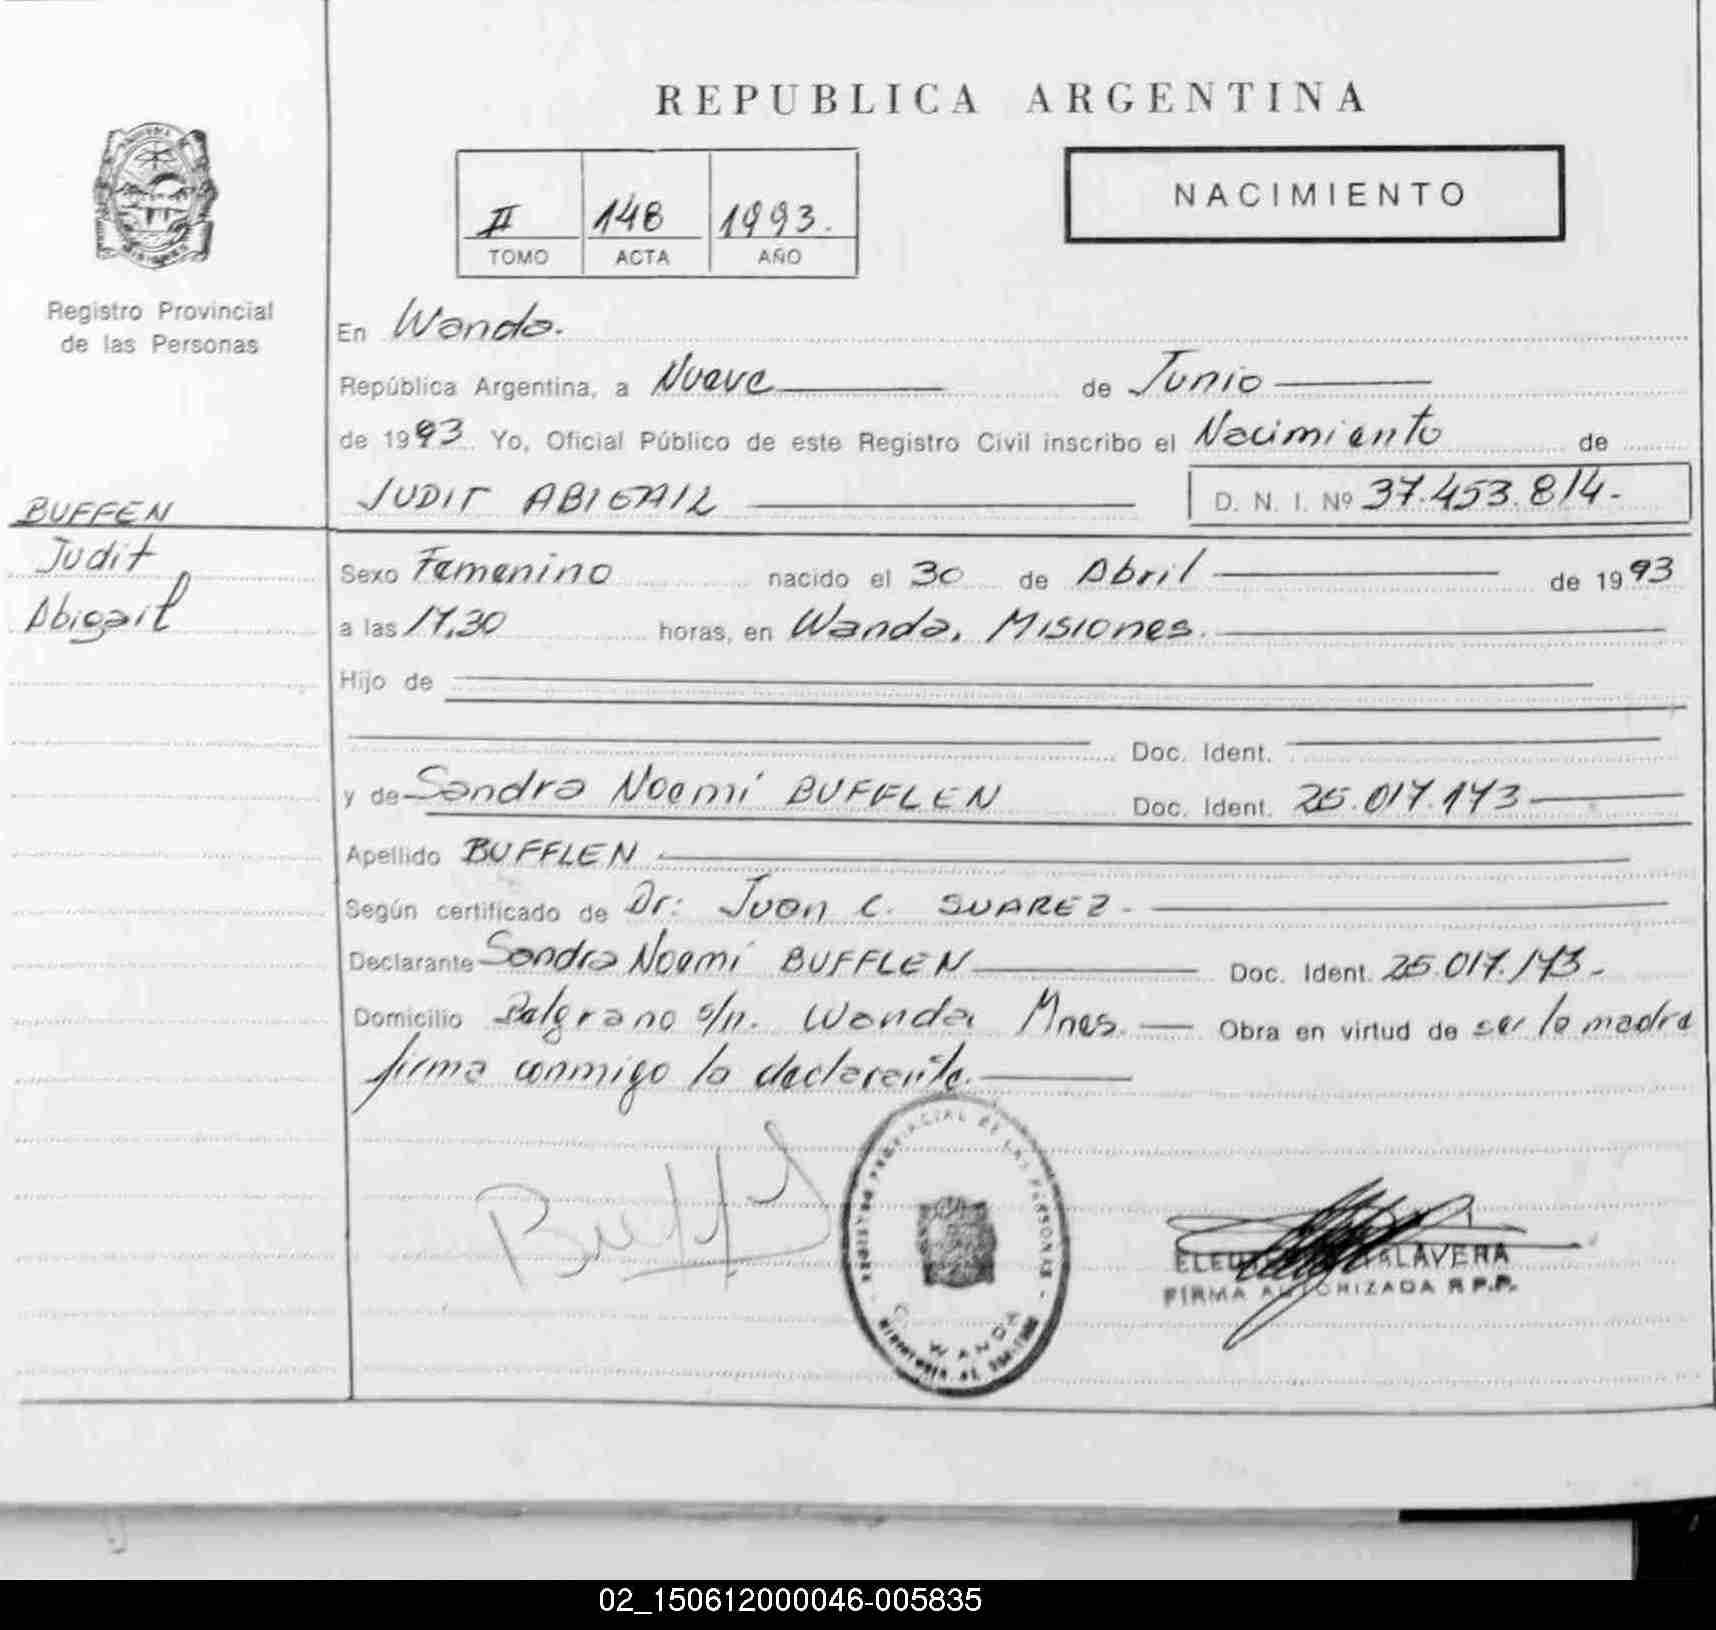 REPUBLICA ARGENTINA
NACIMIENTO
II 148 1993.
TOMO ACTA AÑO
Registro Provincial
de las Personas
En Wanda.
República Argentina, a Nueve de Junio
de 1993 Yo, Oficial Público de este Registro Civil inscribo el Nacimiento de
JUDIT ABIGAIL D. N. I. Nº 37.453.814.-
BUFFEN
Judit
Abigail
Sexo Femenino nacido el 30 de Abril de 1993
a las 17,30 horas, en Wanda, Misiones.
Hijo de
Doc. Ident.
y de Sandra Noemí BUFFLEN Doc. Ident. 25.017.173
Apellido BUFFLEN
Según certificado de Dr: Juan C. SUAREZ.-
Declarante Sandra Noemí BUFFLEN Doc. Ident. 25.017.173.-
Domicilio Belgrano s/n. Wanda, Mnes. Obra en virtud de ser la madre
firma conmigo la declarante.
REGISTRO PROVINCIAL DE LAS PERSONAS
WANDA
FIRMA AUTORIZADA R.P.P.
02_150612000046-005835